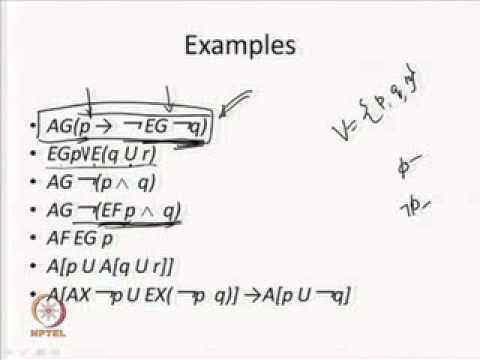 Examples
• AG(p → ¬EG ¬q)
• EGp∨E(q U r)
• AG ¬(p ∧ q)
• AG ¬(EF p ∧ q)
• AF EG p
• A[p U A[q U r]]
• A[AX ¬p U EX(¬p q)] → A[p U ¬q]
V={p,q,r}
p
¬p
NPTEL